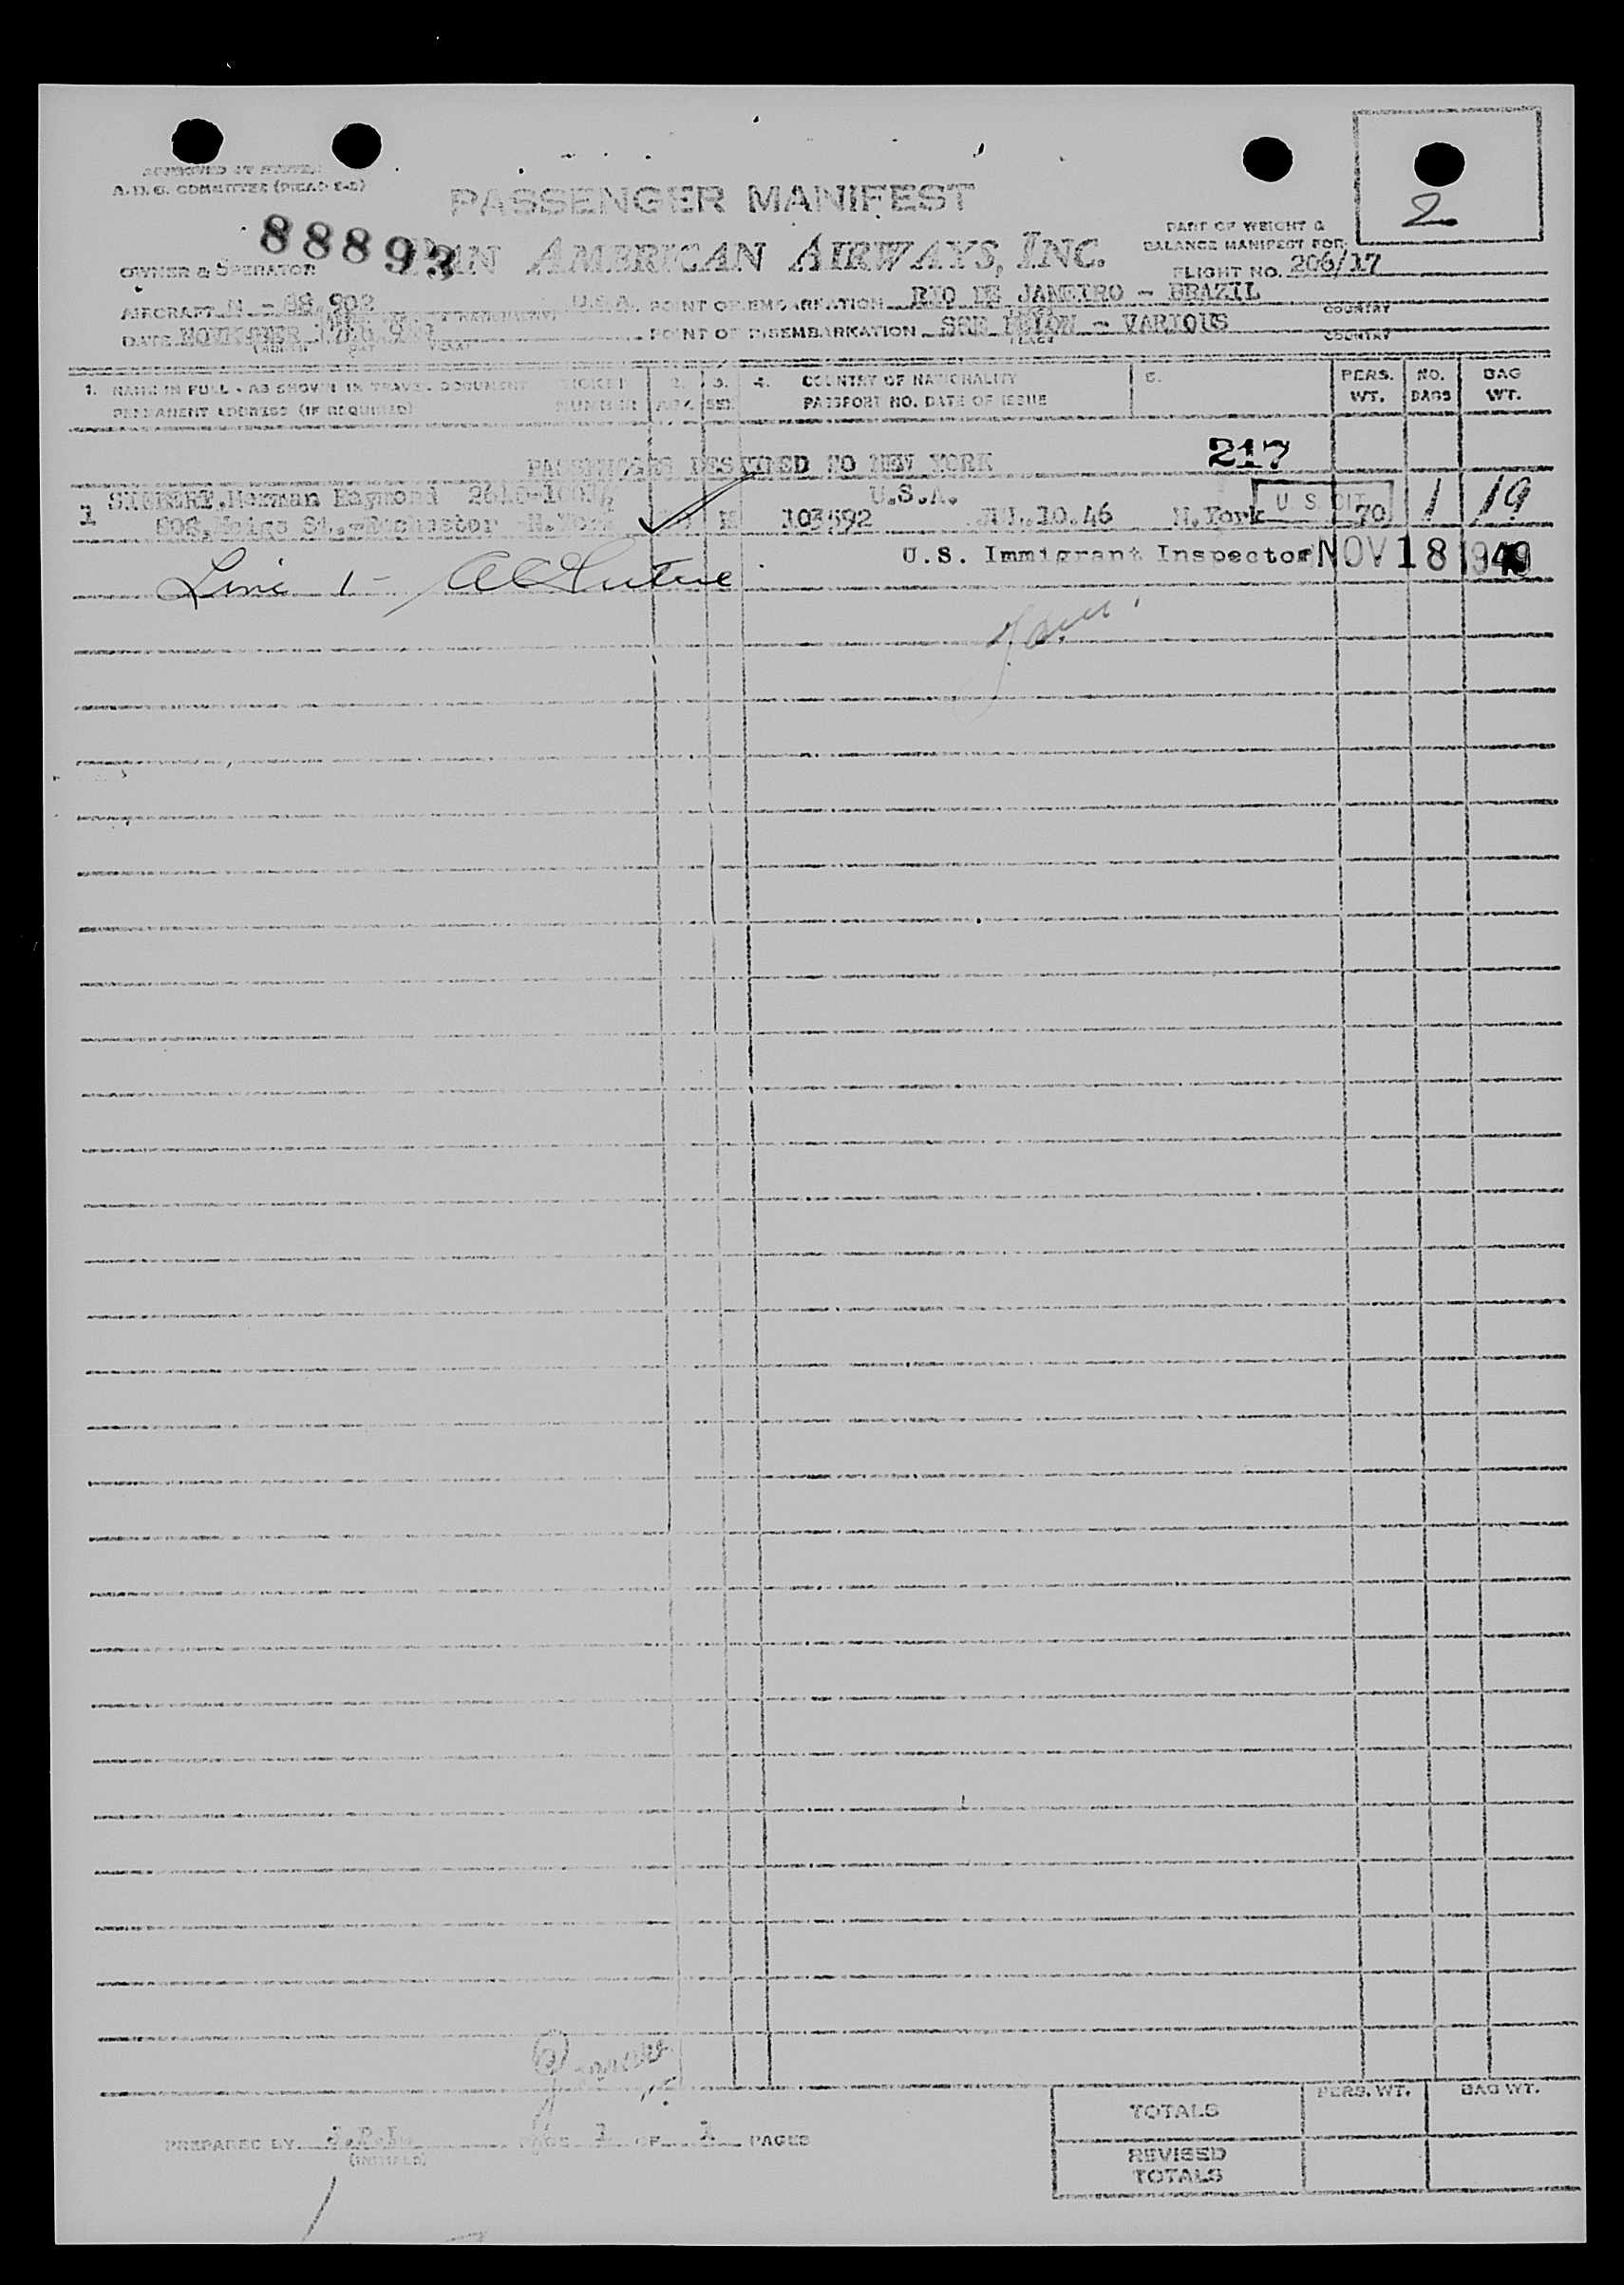 APPROVED BY
A.D.G. COMMITTEE
2
PASSENGER MANIFEST
88893
PAN AMERICAN AIRWAYS, INC.
PART OF WEIGHT &
BALANCE MANIFEST FOR:
OWNER & OPERATOR
FLIGHT NO. 206/17
AIRCRAFT N - 88 902 U.S.A. POINT OF EMBARKATION RIO DE JANEIRO - BRAZIL
COUNTRY
DATE NOVEMBER POINT OF DISEMBARKATION - VARIOUS
(MONTH DAY YEAR) PLACE COUNTRY
1. NAME IN FULL - AS SHOWN IN TRAVEL DOCUMENT TICKET 2. 3. 4. COUNTRY OF NATIONALITY 5. PERS. NO. BAG
PERMANENT ADDRESS (IF REQUIRED) NUMBER AGE SEX PASSPORT NO. DATE OF ISSUE WT. BAGS WT.
PASSENGERS DESTINED TO NEW YORK 217
1 Herman Raymond U.S.A. U S CIT 1 19
St.,-Rochester -N.York M 103592 JUL.10.46 N.York 70
U.S. Immigrant Inspector NOV 18 1949
Line 1 -
TOTALS PERS. WT. BAG WT.
PREPARED BY PAGE 1 OF 1 PAGES
(INITIALS)
REVISED
TOTALS